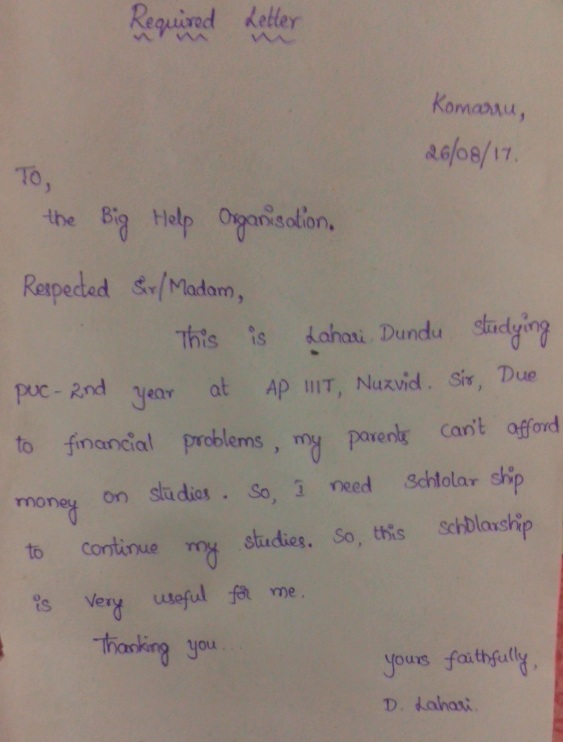 Required Letter
Komarru,
26/08/17.
To,
the Big Help Organisation.
Respected Sir/Madam,
This is Lahari Dundu studying
PUC-2nd year at AP IIIT, Nuzvid. Sir, Due
to financial problems, my parents can't afford
money on studies. So, I need Schlolar ship
to continue my studies. So, this scholarship
is very useful for me.
Thanking you...
yours faithfully,
D. Lahari.